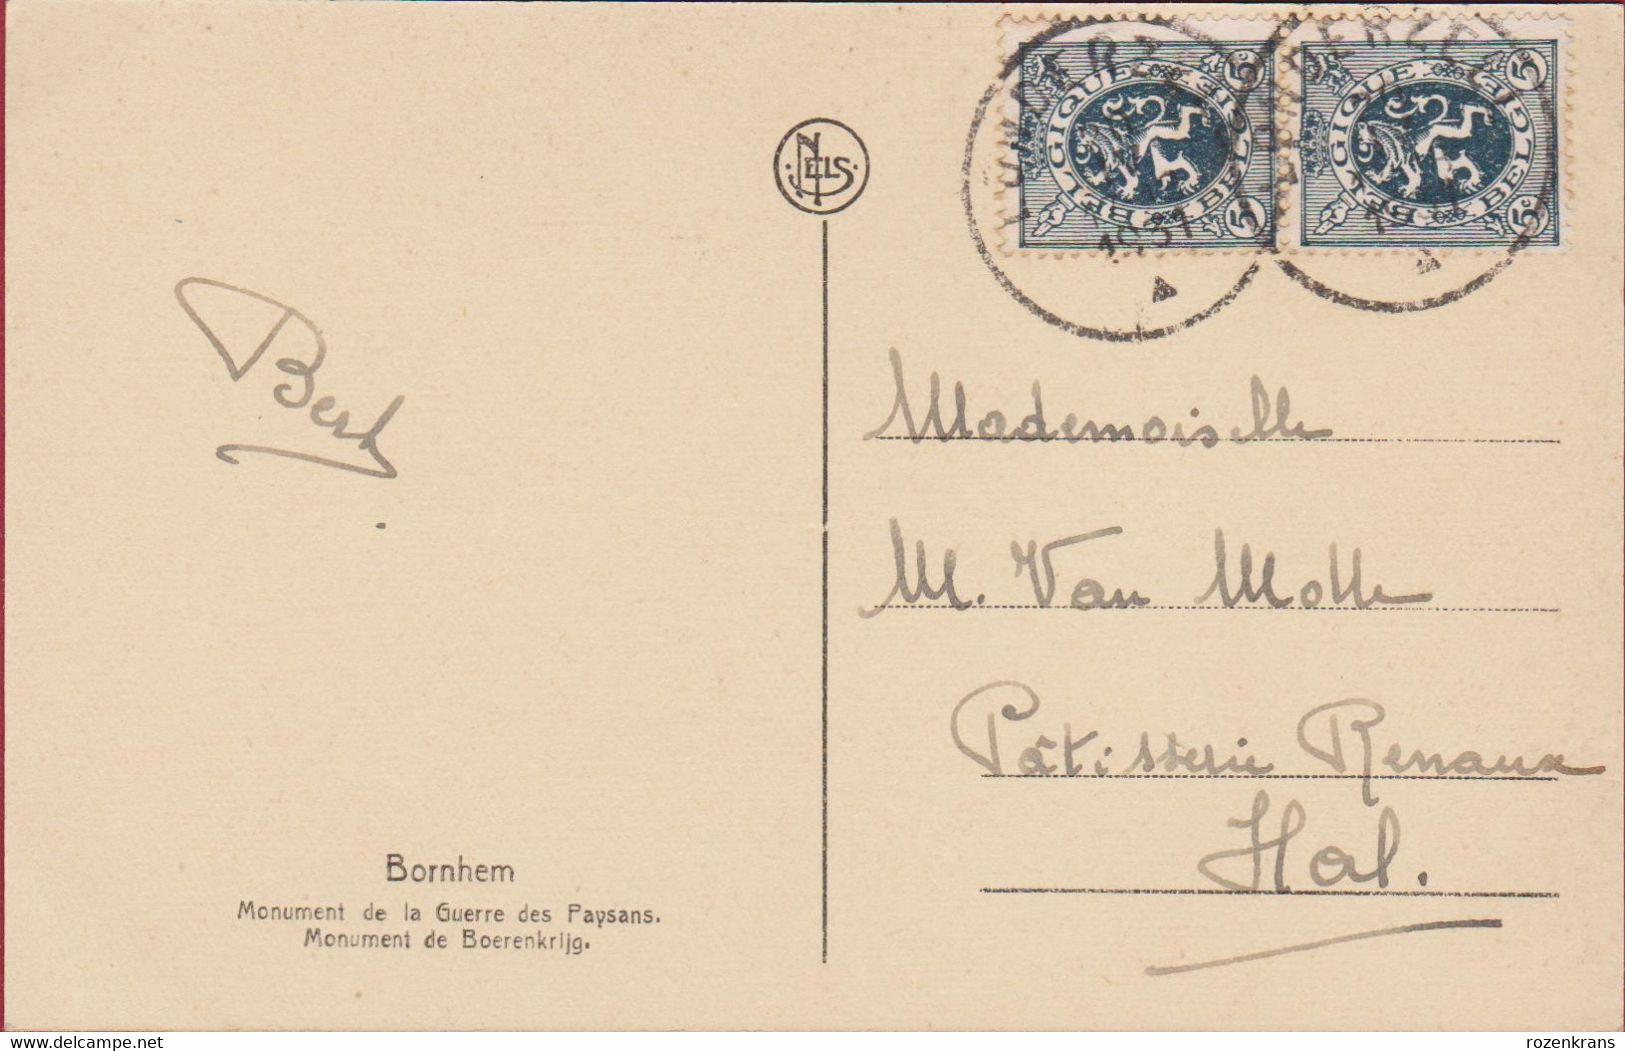 NELS
5c
BELGIQUE
BELGIË
5c
5c
BELGIQUE
BELGIË
5c
1931
Bert
Mademoiselle
M. Van Molle
Pâtisserie Renaux
Hal.
Bornhem
Monument de la Guerre des Paysans.
Monument de Boerenkrijg.
www.delcampe.net
rozenkrans